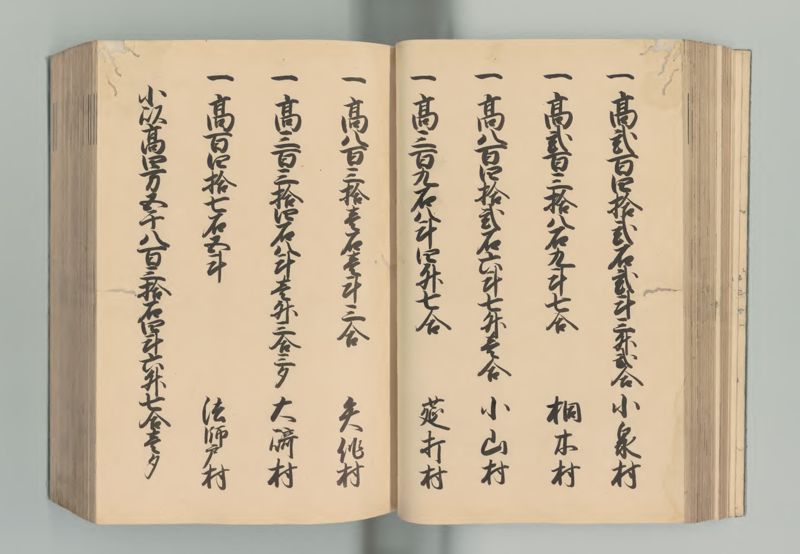 一 高弐百四拾弐石弐斗三升弐合 小泉村
一 高弐百三拾八石九斗七合 桐木村
一 高八百四拾弐石六斗七升壱合 小山村
一 高三百九石八斗四升七合 莚打村
一 高八百三拾壱石壱斗三合 矢作村
一 高三百三拾四石八斗壱升三合三夕 大崎村
一 高百四拾七石五斗 法師戸村
小以高四万五千八百三拾石四斗六升七合壱夕